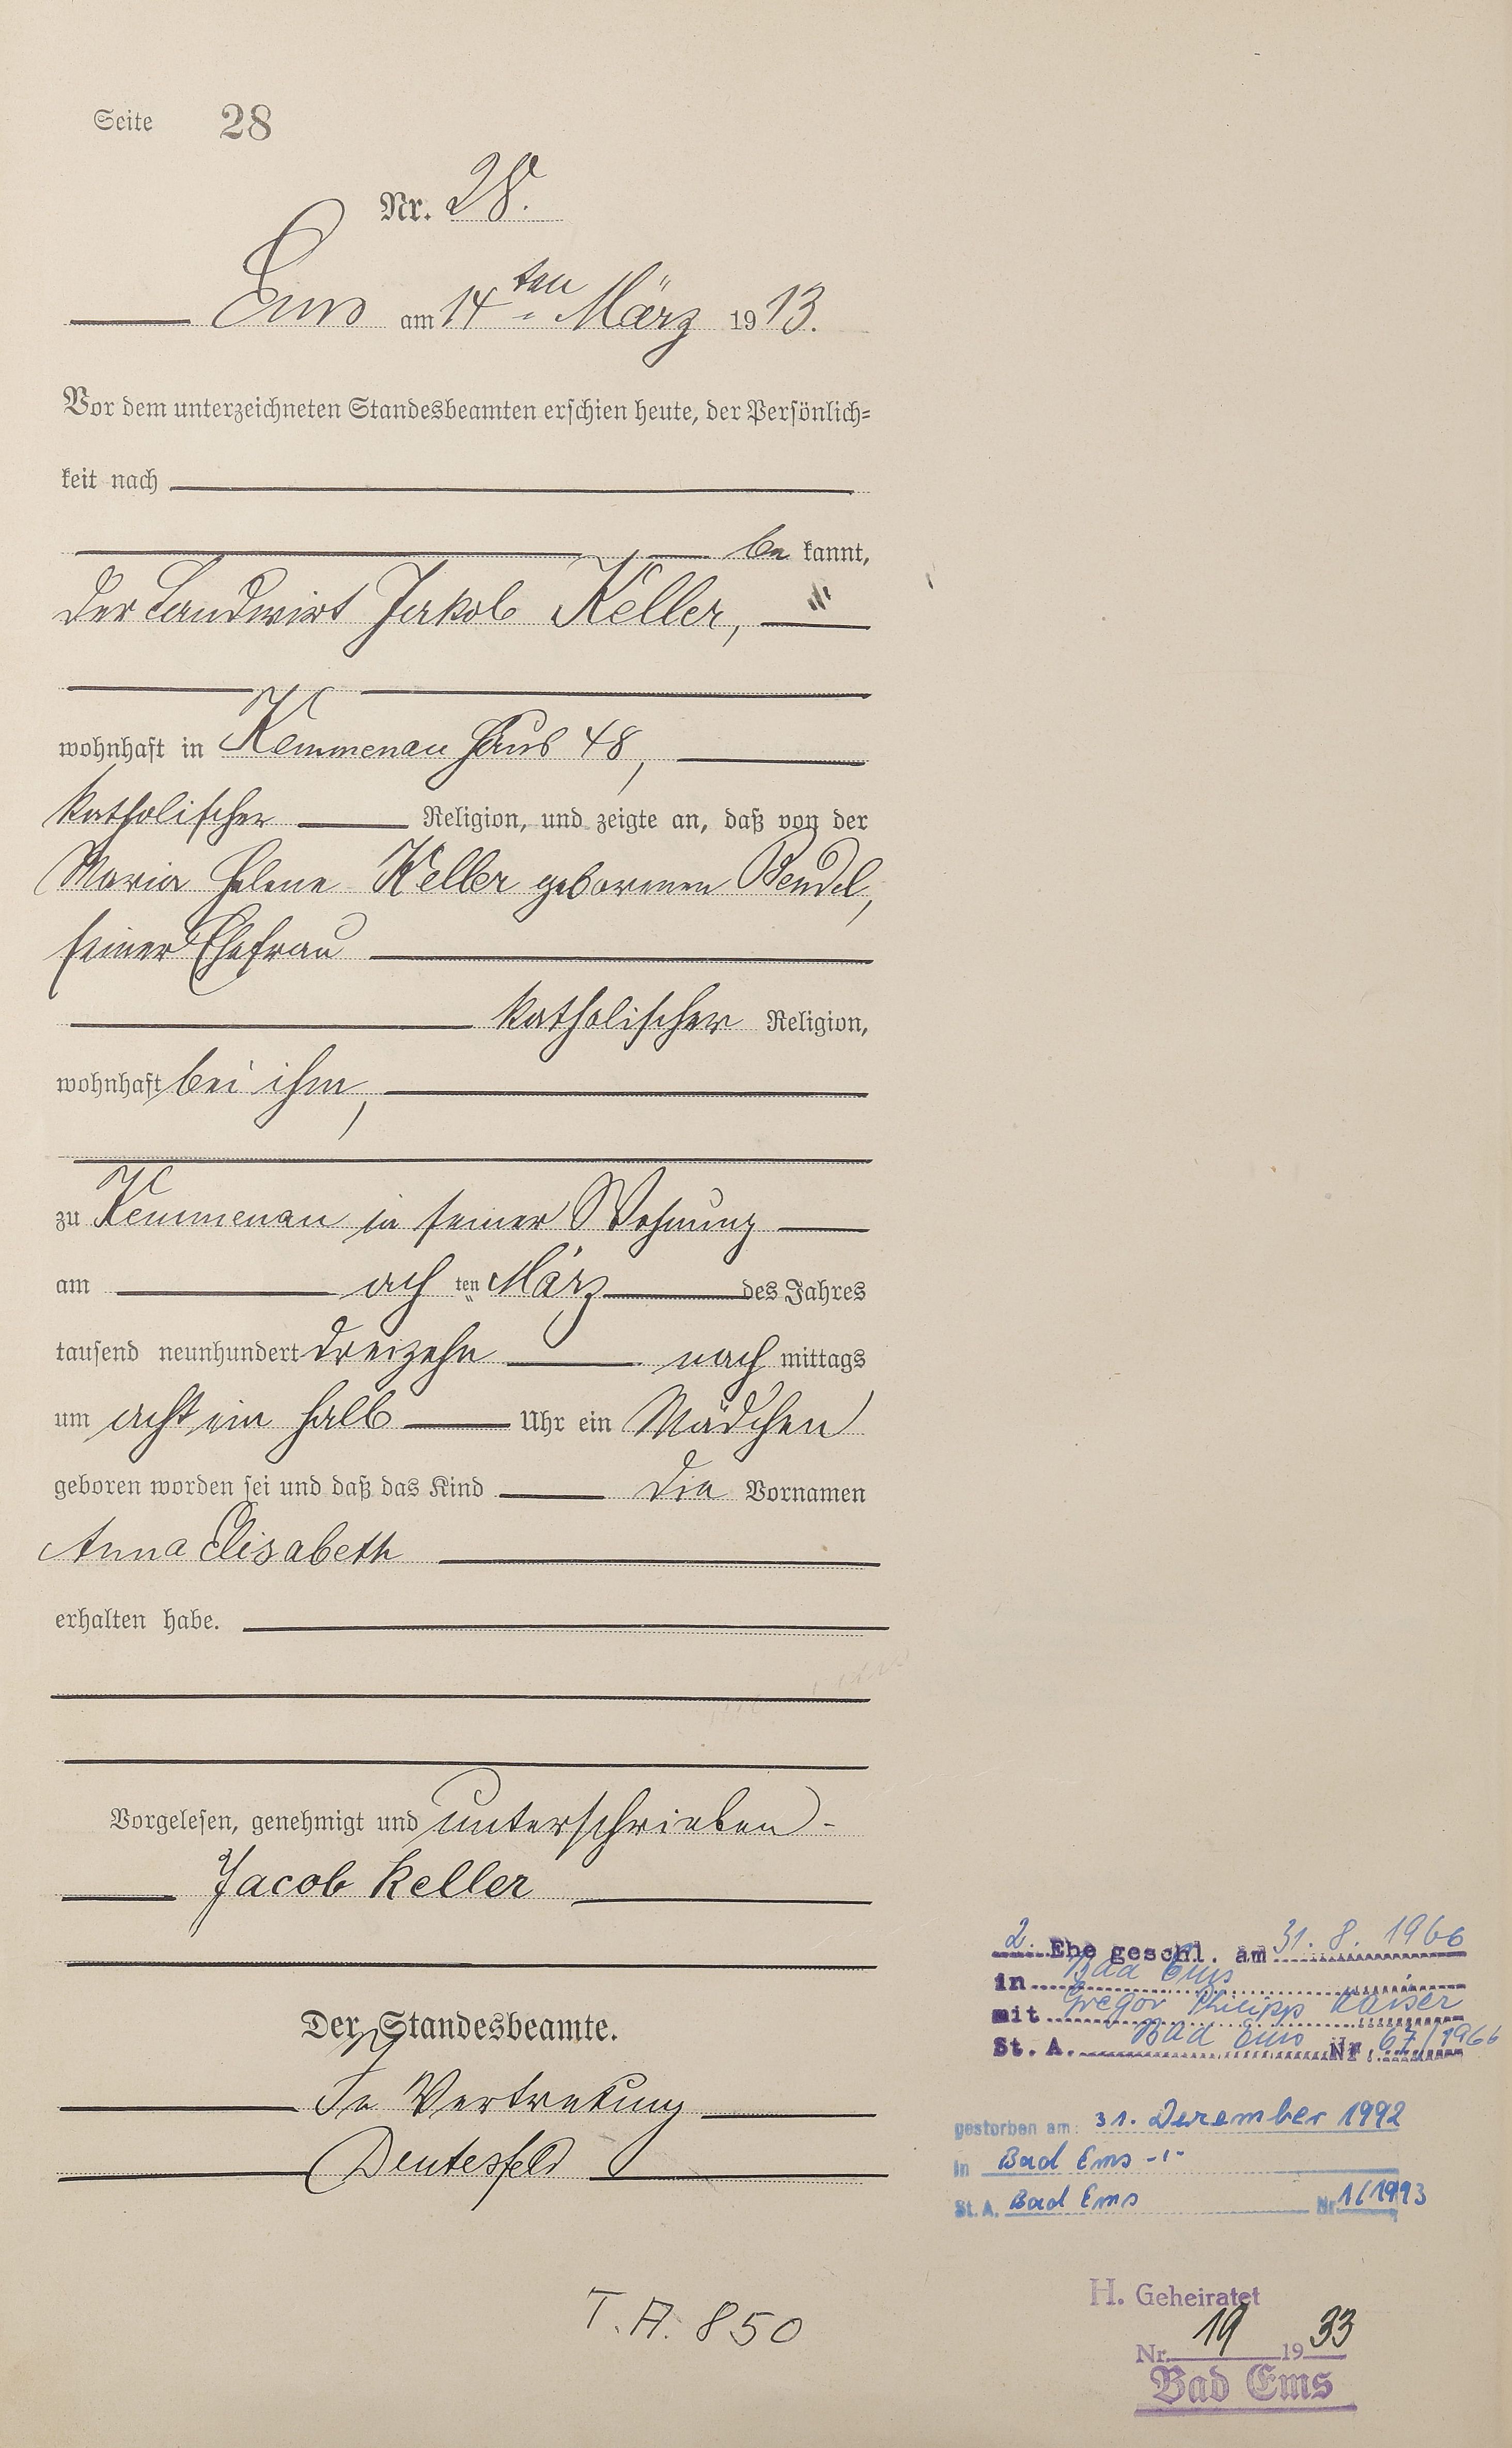 Seite 28
Nr. 28.
Ems am 14ten März 1913.
Vor dem unterzeichneten Standesbeamten erschien heute, der Persönlich-
keit nach
be kannt,
der Landwirt Jakob Keller,
wohnhaft in Kemmenau Haus 48,
katholischer Religion, und zeigte an, daß von der
Maria Helene Keller geborenen Bendel,
seiner Ehefrau
katholischer Religion,
wohnhaft bei ihm,
zu Kemmenau in seiner Wohnung
am ach ten März des Jahres
tausend neunhundert dreizehn nach mittags
um acht ein halb Uhr ein Mädchen
geboren worden sei und daß das Kind die Vornamen
Anna Elisabeth
erhalten habe.
Vorgelesen, genehmigt und unterschrieben
Jacob Keller
Der Standesbeamte.
In Vertretung
Deutesfeld
T. A. 850
2. Ehe geschl. am 31. 8. 1966
in Bad Ems
mit Gregor Philipp Kaiser
St. A. Bad Ems Nr. 67/1966
gestorben am: 31. Dezember 1992
in Bad Ems
St. A. Bad Ems Nr. 1/1993
H. Geheiratet
Nr. 19 1933
Bad Ems